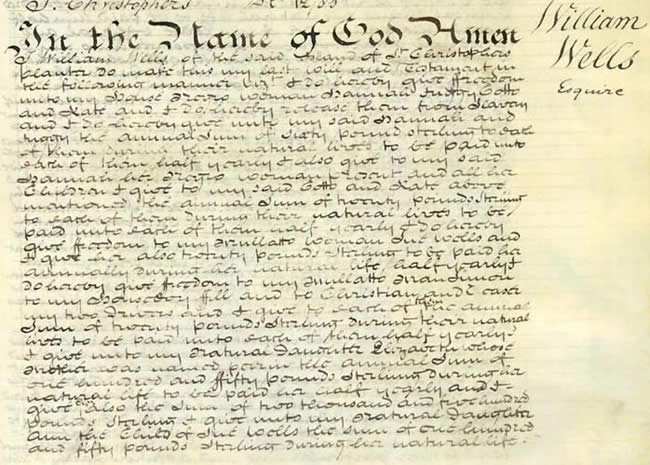 St. Christophers
In the Name of God Amen
William
Wells
Esquire
I William Wells of the said Island of St. Christophers
planter do make this my last will and Testament in
the following manner Viz. I do hereby give freedom
unto my House Negro woman Hannah Juggy Cotto
and Kate and I do hereby release them from Slavery
and I do hereby give unto my said Hannah and
Juggy the annual Sum of Sixty pound Sterling to each
of them during their natural lives to be paid unto
each of them half yearly I also give to my said
Hannah her Negro woman present and all her
Children I give to my said Cotto and Kate above
mentioned the annual Sum of twenty pounds Sterling
to each of them during their natural lives to be
paid unto each of them half yearly I do hereby
give freedom to my Mullatto woman Sue Wells and
I give her also thirty pounds Sterling to be paid her
annually during her natural life half yearly I
do hereby give freedom to my Mullatto man
to my House Boy and to Christian and
my two Drivers and I give to each of them the annual
Sum of twenty pounds Sterling during their natural
lives to be paid unto each of them half yearly
I give unto my Natural Daughter Elizabeth whose
mother was named the annual Sum of
one hundred and ffifty pounds Sterling during her
natural life to be paid her half yearly and I
give also the Sum of two thousand and five hundred
pounds Sterling I give unto my Natural Daughter
Ann the Child of Sue Wells the Sum of one hundred
and fifty pounds Sterling during her natural life